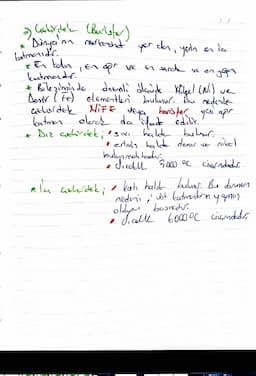 Çekirdek (Barisfer)
* Dünya'nın merkezinde yer alan, yerin en iç
katmanıdır.
* En kalın, en ağır ve en sıcak ve en yoğun
katmandır.
* Bileşiminde önemli ölçüde Nikel (Ni) ve
Demir (Fe) elementleri bulunur. Bu nedenle
çekirdek NİFE veya barisfer yani ağır
katman olarak da ifade edilir.
* Dış çekirdek; • sıvı halde bulunur.
• erimiş halde demir ve nikel
bulunmaktadır.
• Sıcaklık 5000 °C civarındadır.
* İç çekirdek; • katı halde bulunur. Bu durumun
nedeni, üst katmanların yapmış
olduğu basınçtır.
• Sıcaklık 6000 °C civarındadır.